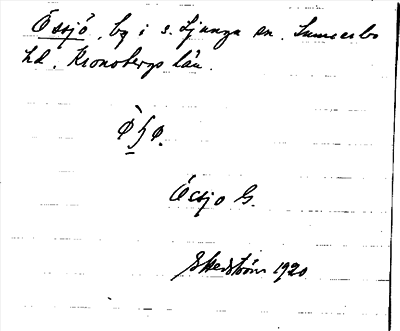 Össjö, by i s. Ljunga sn. Sunnerbo
hd. Kronobergs län.
Össjo G.
Hedström 1920